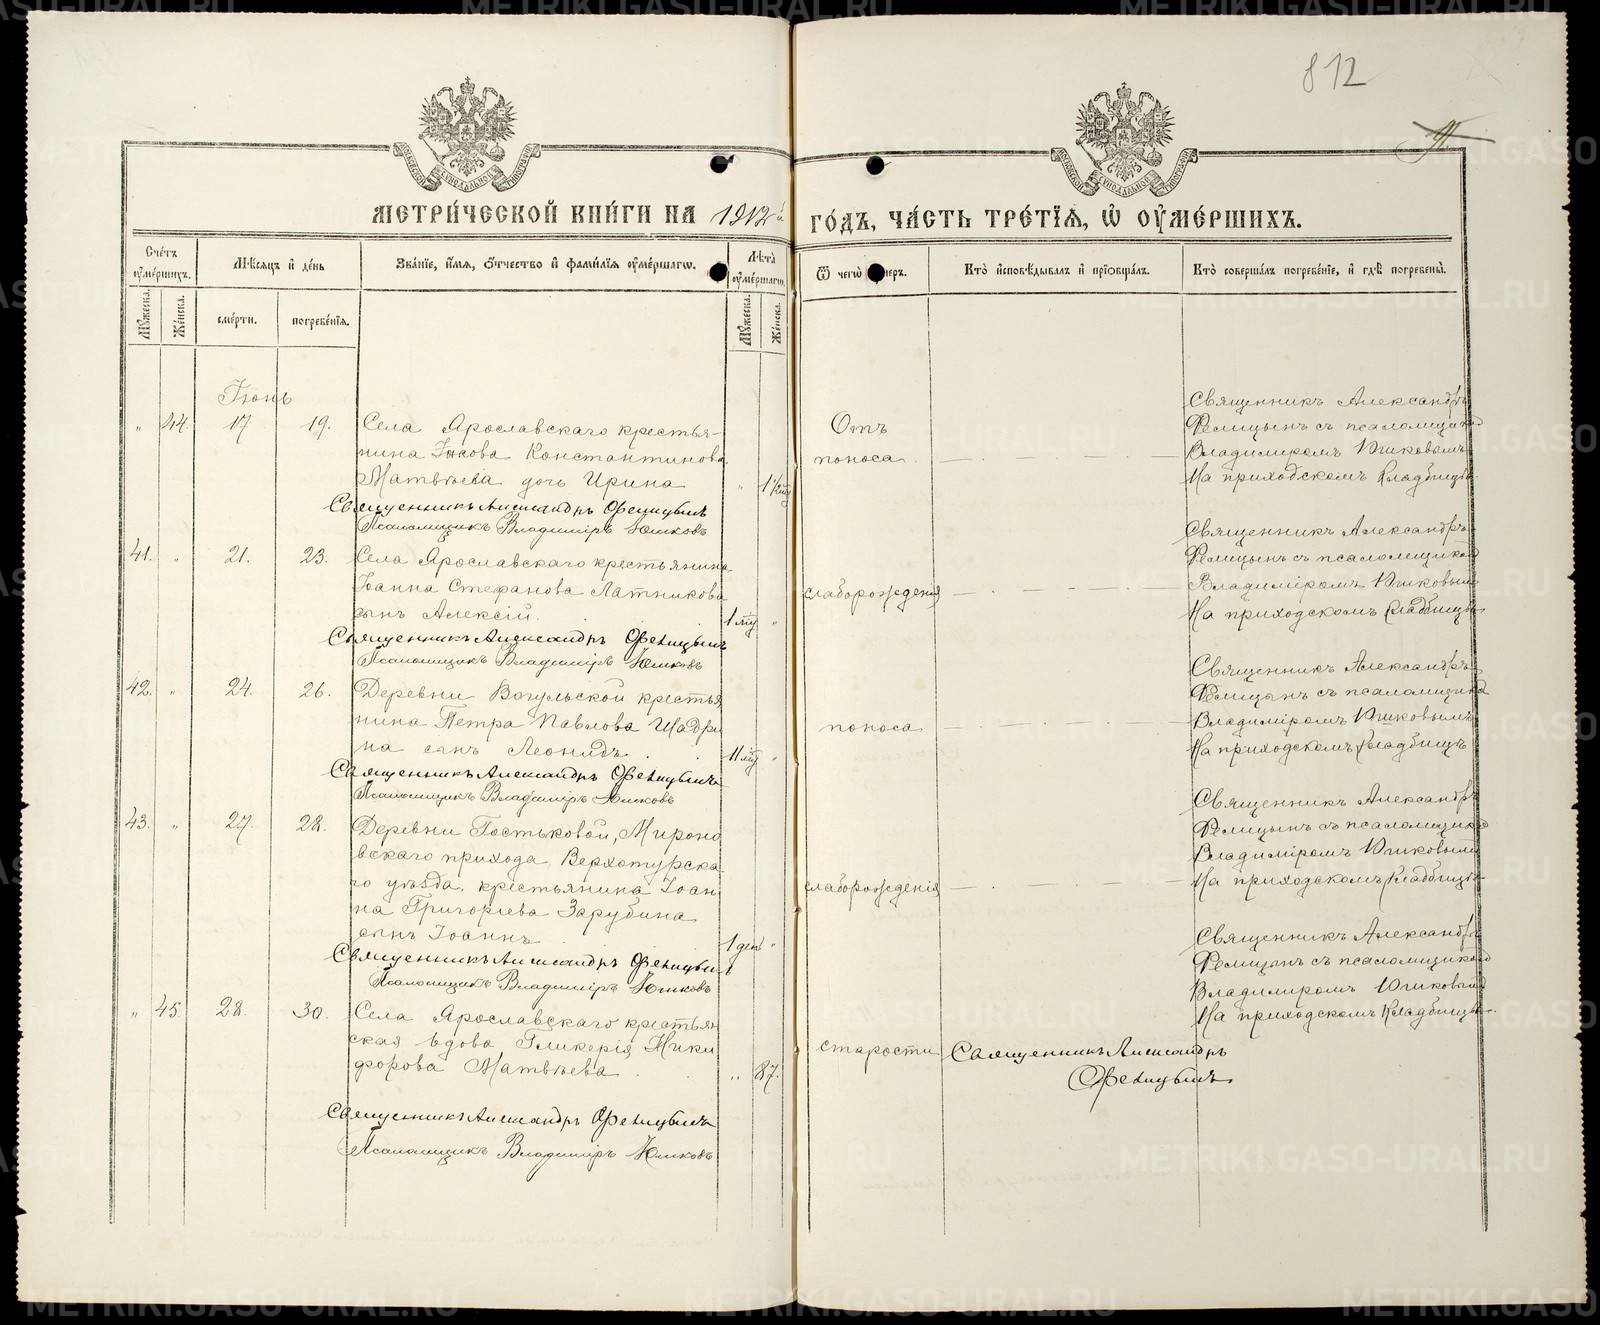 812
МЕТРИЧЕСКОЙ КНИГИ НА 1912й ГОДЪ, ЧАСТЬ ТРЕТІЯ, Ѡ ОУМЕРШИХЪ.
Счетъ оумершихъ.
Мужеска.
Женска.
Мѣсяцъ и день
смерти.
погребенія.
Званіе, имя, отчество и фамилія оумершагѡ.
Лѣта оумершагѡ.
Мужеска.
Женска.
Ѿ чегѡ
Кто исповѣдывалъ и пріобщалъ.
Кто совершалъ погребеніе, и гдѣ погребены.
Іюнь
„ 44. 17 19.
Села Ярославскаго крестья-
нина Константинова
Матвѣева дочь Ирина
„
Священникъ Александръ Фелицынъ
Псаломщикъ Владиміръ Юшковъ
Отъ
поноса
Священникъ Александръ
Фелицынъ съ псаломщикомъ
Владимиромъ Юшковымъ
На приходскомъ кладбищѣ
41. „ 21. 23.
Села Ярославскаго крестьянина
Іоанна Стефанова Латникова
сынъ Алексій.
1 мѣс „
Священникъ Александръ Фелицынъ
Псаломщикъ Владиміръ Юшковъ
слаборожденія
Священникъ Александръ
Фелицынъ съ псаломщикомъ
Владиміромъ Юшковымъ
На приходскомъ кладбищѣ
42. „ 24. 26.
Деревни Вогульской крестья
нина Петра Павлова Шадри
на сынъ Леонидъ.
11 мѣс „
Священникъ Александръ Фелицынъ
Псаломщикъ Владиміръ Юшковъ
поноса
Священникъ Александръ
Фелицынъ съ псаломщикомъ
Владиміромъ Юшковымъ
На приходскомъ кладбищѣ
43. „ 27. 28.
Деревни Гостьковой, Мироно
вскаго прихода Верхотурска
го уѣзда, крестьянина Іоан
на Григоріева Зарубина
сынъ Іоаннъ
1 день „
Священникъ Александръ Фелицынъ
Псаломщикъ Владиміръ Юшковъ
слаборожденія
Священникъ Александръ
Фелицынъ съ псаломщикомъ
Владиміромъ Юшковымъ
На приходскомъ кладбищѣ
„ 45 28. 30.
Села Ярославскаго крестьян
ская вдова Гликерія Ники
форова Матвѣева
„ 87.
Священникъ Александръ Фелицынъ
Псаломщикъ Владиміръ Юшковъ
старости
Священникъ Александръ
Фелицынъ
Священникъ Александръ
Фелицынъ съ псаломщикомъ
Владимиромъ Юшковымъ
На приходскомъ кладбищѣ.
METRIKI.GASO-URAL.RU